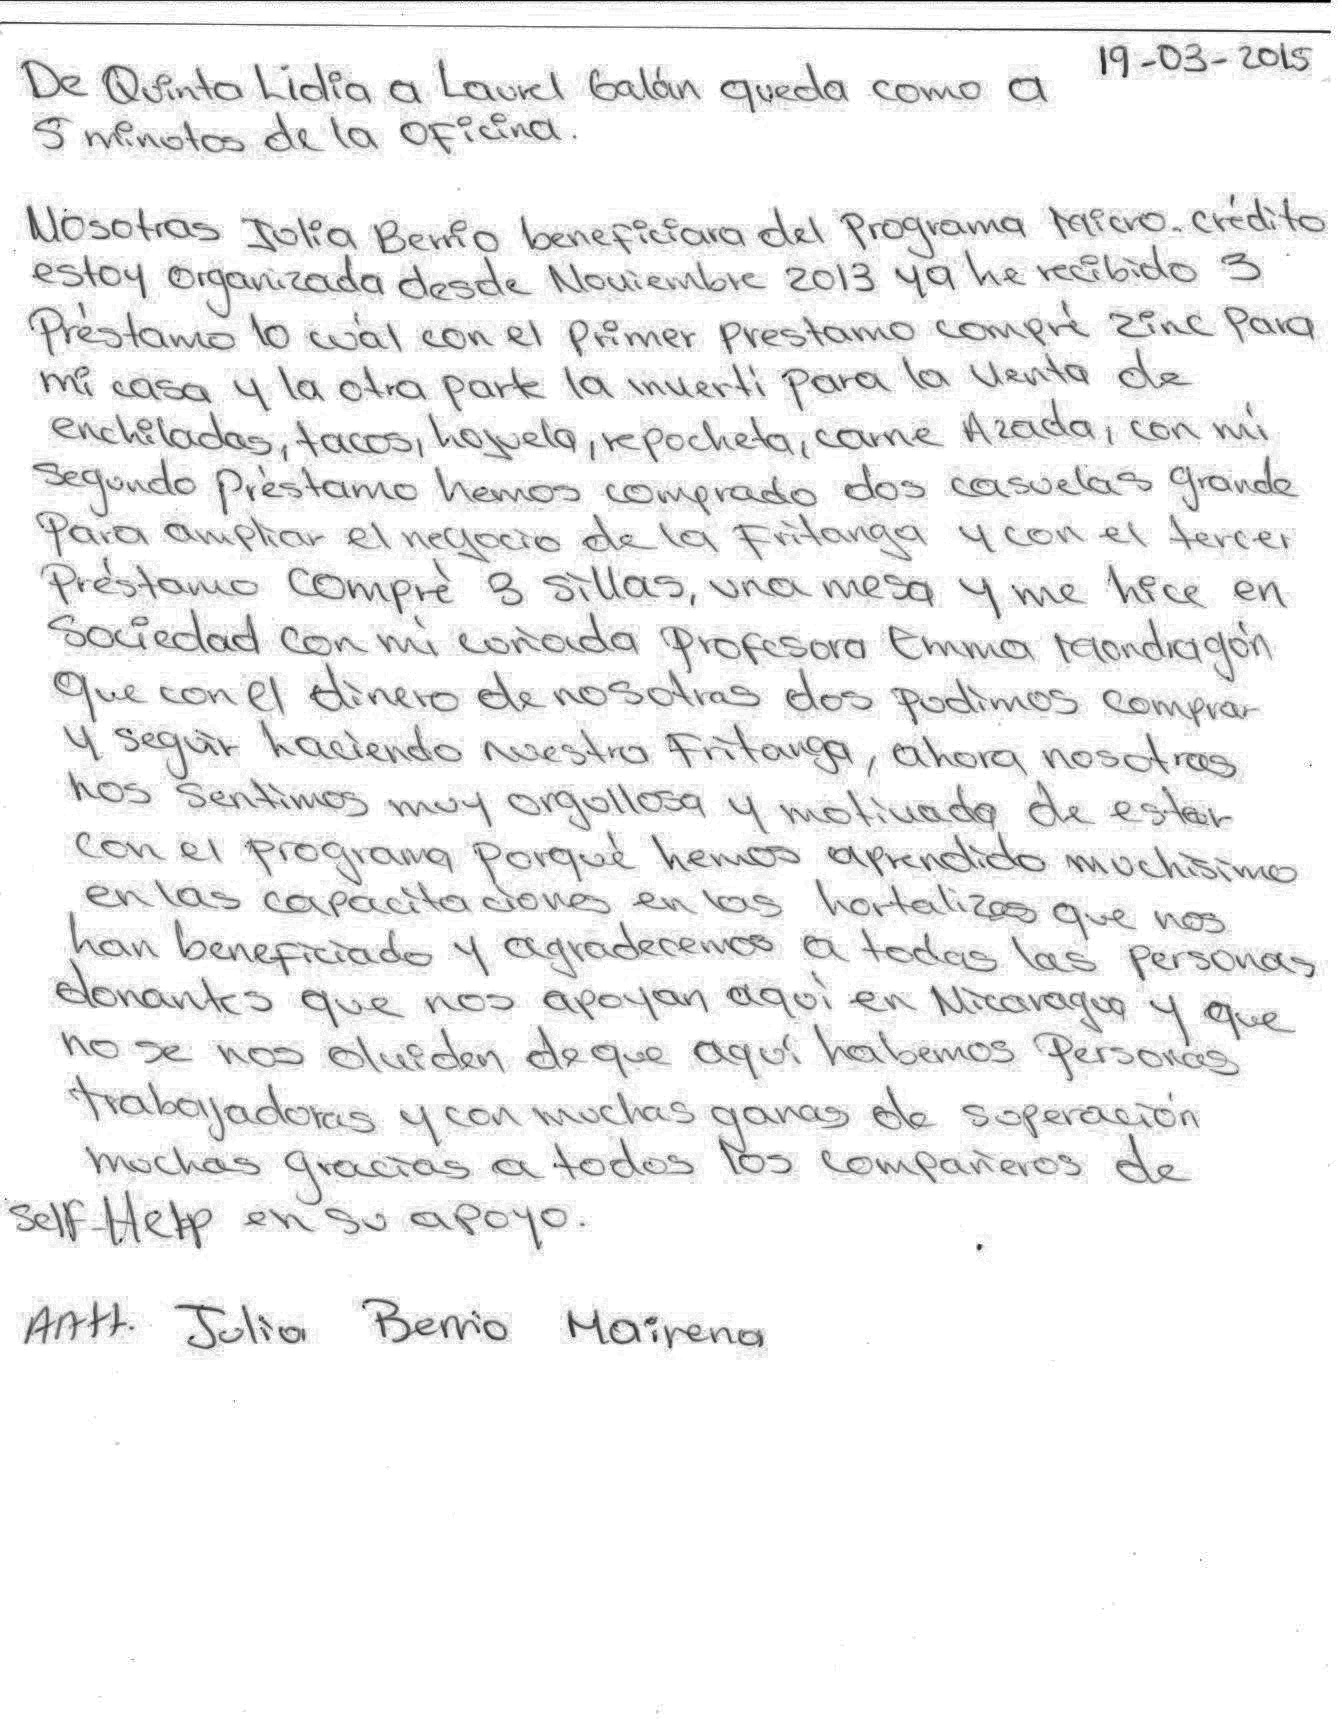 19-03-2015
De Quinta Lidia a Laurel Galán queda como a
5 minutos de la oficina.
Nosotras Julia Berrio beneficiara del Programa Micro-crédito
estoy organizada desde Noviembre 2013 ya he recibido 3
Préstamo lo cuál con el primer prestamo compré zinc para
mi casa y la otra parte la inverti para la venta de
enchiladas, tacos, hojuela, repocheta, carne Azada, con mi
segundo préstamo hemos comprado dos casuelas grande
para ampliar el negocio de la Fritanga y con el tercer
Préstamo compré 3 sillas, una mesa y me hice en
Sociedad con mi cuñada Profesora Emma Mondragón
que con el dinero de nosotras dos pudimos comprar
y seguir haciendo nuestra Fritanga, ahora nosotras
nos sentimos muy orgullosa y motivada de estar
con el programa porqué hemos aprendido muchisimo
en las capacitaciones en las hortalizas que nos
han beneficiado y agradecemos a todas las personas
donantes que nos apoyan aquí en Nicaragua y que
no se nos olviden de que aquí habemos Personas
trabajadoras y con muchas ganas de superación
muchas gracias a todos los compañeros de
Self-Help en su apoyo.
Antt. Julia Berrio Mairena